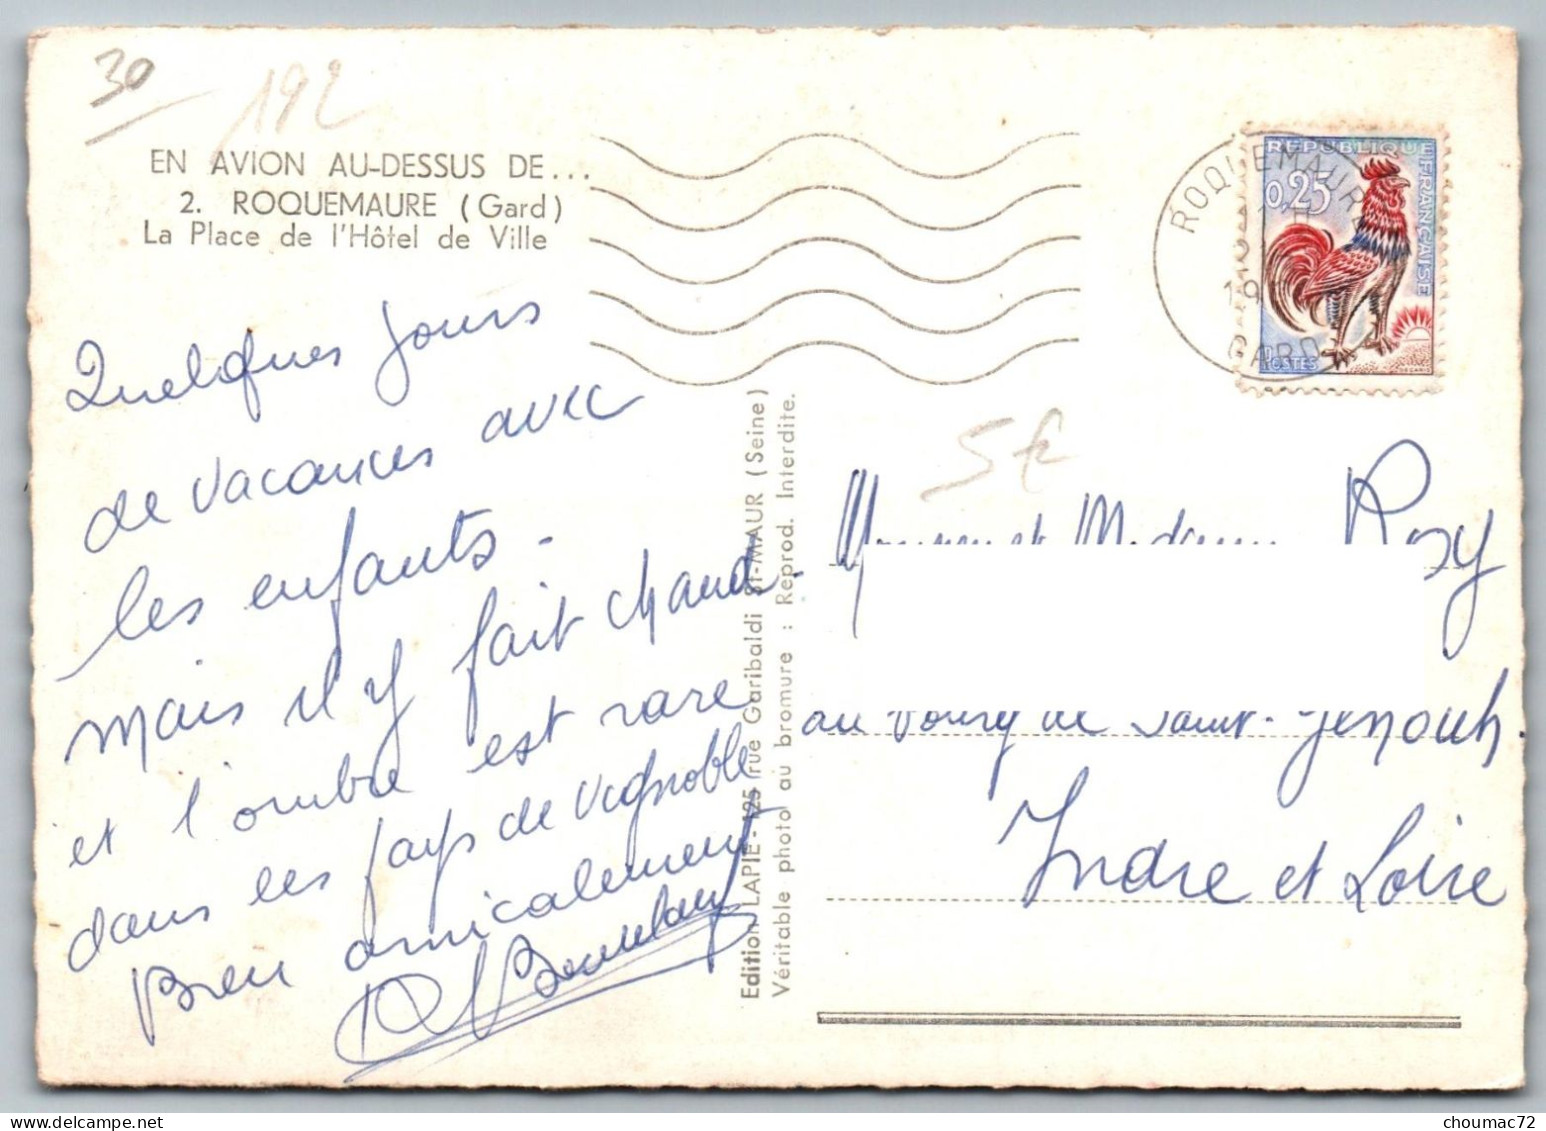 30
192
EN AVION AU-DESSUS DE...
2. ROQUEMAURE (Gard)
La Place de l'Hôtel de Ville
Quelques jours
de vacances avec
les enfants -
mais il y fait chaud -
et l'ombre est rare
dans les pays de vignoble
Bien amicalement
Edition LAPIE - 125, rue Garibaldi St-MAUR (Seine)
Véritable photo au bromure : Reprod. Interdite.
ROQUEMAURE
19
GARD
REPUBLIQUE FRANÇAISE
0,25
POSTES
DECARIS
5€
Monsieur et Madame Rosy
au bourg de Saint-Genouph.
Indre et Loire
choumac72